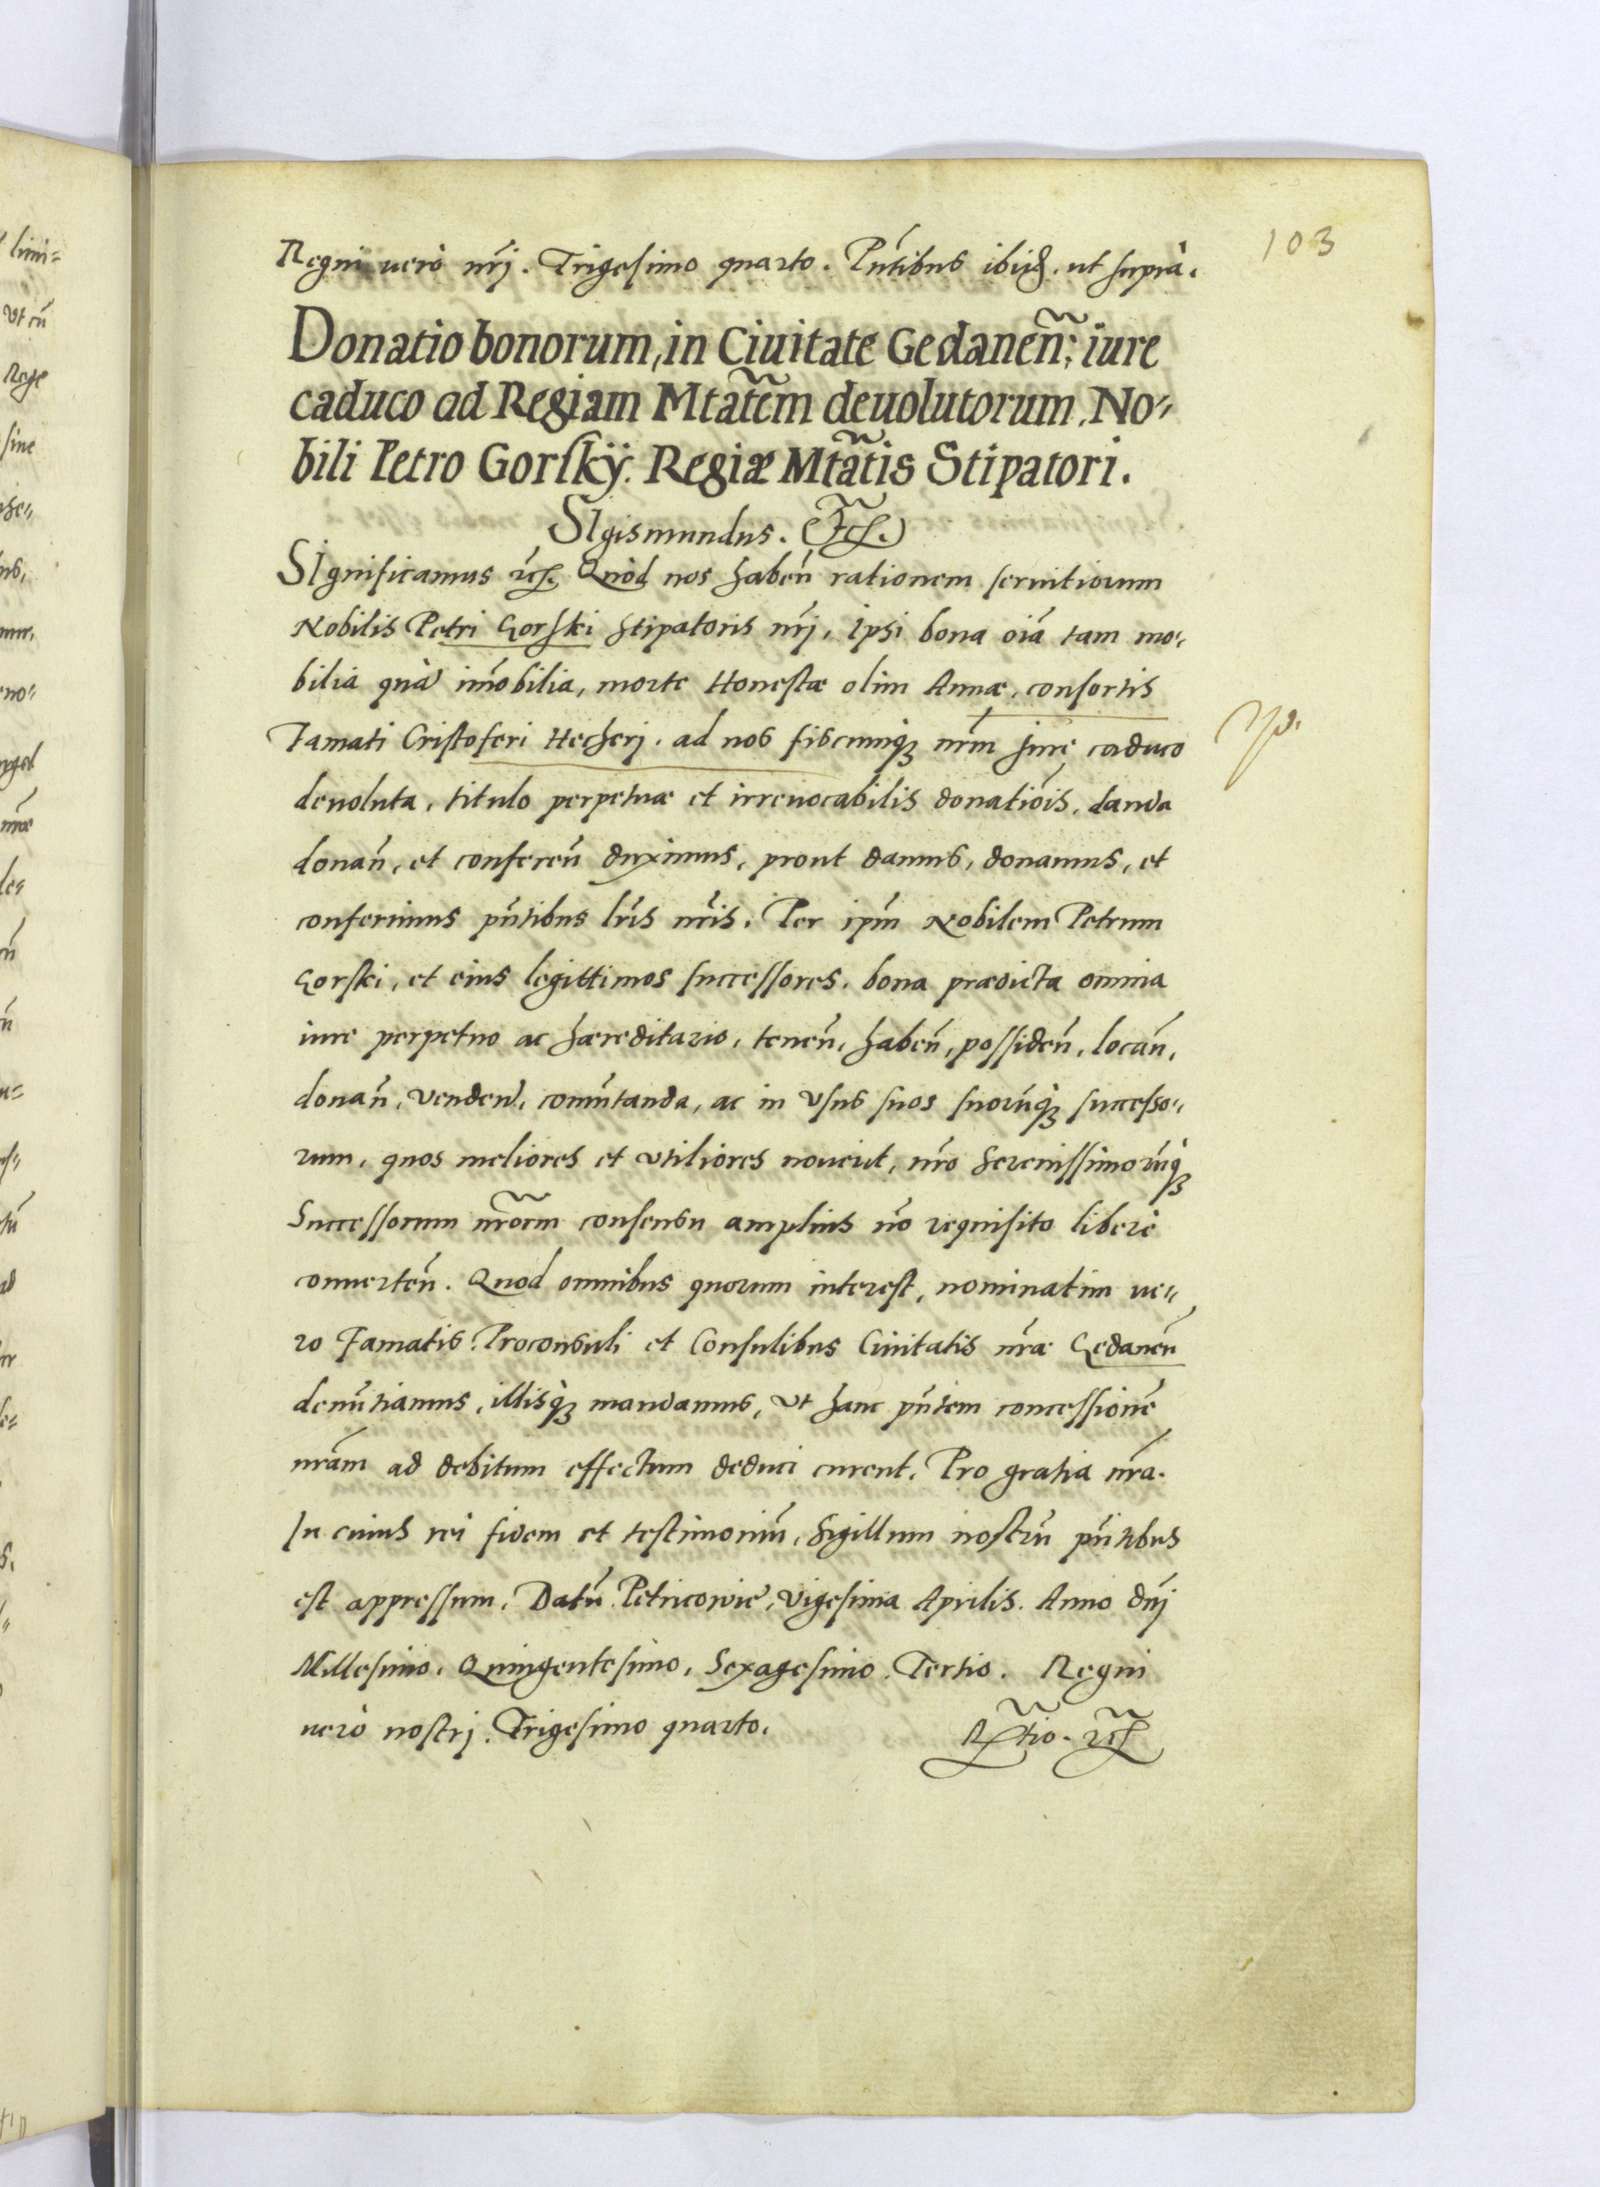 103
Regni uerò nrj. Trigesimo quarto. Pntibus ibijd. ut suprà.
Donatio bonorum, in Ciuitate Gedaneñ: iure
caduco ad Regiam Mtatem deuolutorum, No-
bili Petro Gorskÿ. Regiæ Mtatis Stipatori.
SIgismundus. Etc.
SIgnificamus etc. Quòd nos habeñ rationem seruitiorum
Nobilis Petri Gorski Stipatoris nrj, ipsi bona oia tam mo-
bilia quà imobilia, morte Honestæ olim Annæ, consortis
Famati Cristoferi Hecherj. ad nos fiscumq; nrm iure caduco
deuoluta, titulo perpetuæ et irreuocabilis donatiois, danda
donañ, et confereñ duximus, prout damus, donamus, et
conferimus pntibus lris nris. Per ipm Nobilem Petrum
Gorski, et eius legittimos successores. bona prædicta omnia
iure perpetuo ac hæreditario, teneñ, habeñ, possideñ, locañ,
donañ, vendeñ, comutanda, ac in vsus suos suorùq; successo-
rum, quos meliores et vtiliores nouerit, nro Serenissimorùq;
Successorum nrorm consensu amplius no requisito liberè
conuerteñ. Quod omnibus quorum interest, nominatim ue-
ro Famatis. Proconsuli et Consulibus Ciuitatis nræ Gedaneñ
denutiamus, illisq; mandamus, vt hanc pntem concessione
nram ad debitum effectum deduci curent. Pro gratia nra.
In cuius rei fidem et testimoniu, Sigillum nostru pntibus
est appressum. Datu Petricoviæ, vigesima Aprilis. Anno dnj
Millesimo, Quingentesimo, Sexagesimo. Tertio. Regni
uerò nostrj. Trigesimo quarto. Rtio. etc